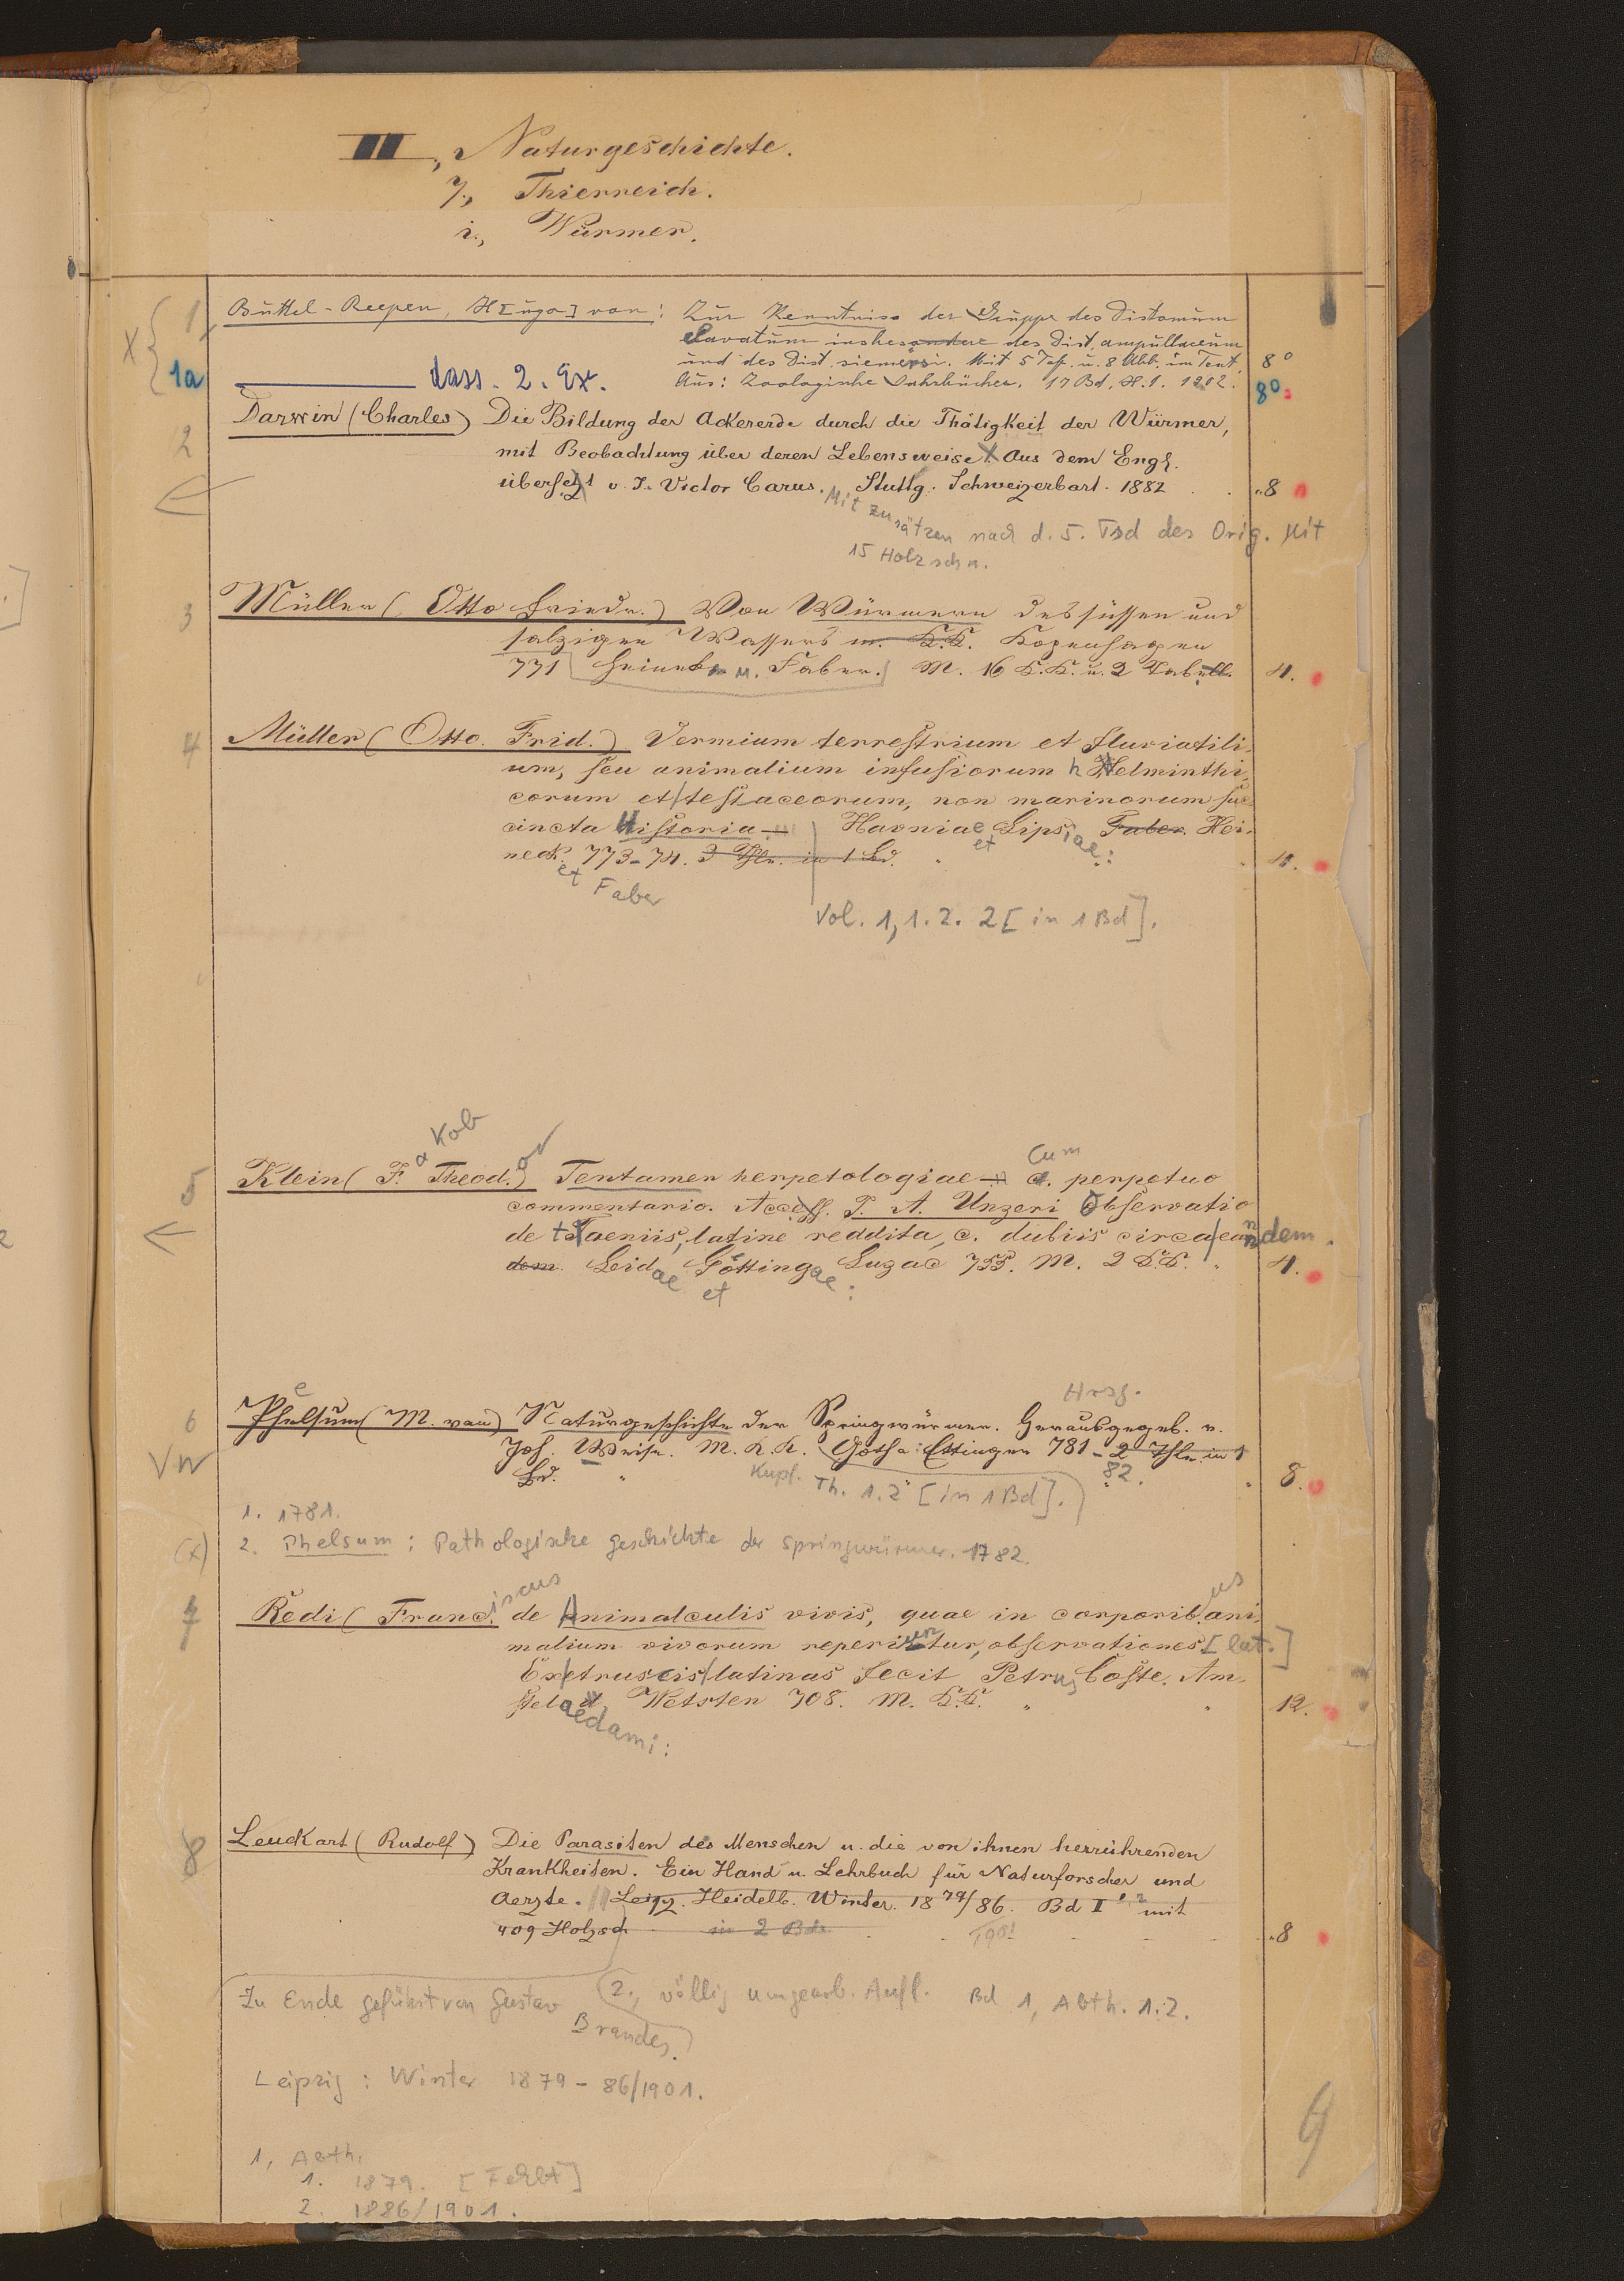 III., Naturgeschichte.
7., Thierreich.
i., Würmer.
1 Buttel-Reepen, H[ugo] von: Zur Kenntniss der Gruppe des Distomum
clavatum insbesondere des Dist. ampullaceum
und des Dist. siemersi. Mit 5 Taf. u. 8 Abb. im Text. 8°
Aus: Zoologische Jahrbücher. 17 Bd, H. 1. 1902.
1a dass. 2. Ex. 8°
2 Darwin (Charles) Die Bildung der Ackererde durch die Thätigkeit der Würmer,
mit Beobachtung über deren Lebensweise. Aus dem Engl.
übersetzt v. J. Victor Carus. Stuttg. Schweizerbart. 1882 8
Mit Zusätzen nach d. 5. Tsd des Orig. Mit
15 Holzschn.
3 Müller (Otto Friedr.) Von Würmern des süssen und
salzigen Wassers m. K.K. Kopenhagen
771 Heineck u. Faber. M. 16 K.K. u. 2 Tabell. 4.
4 Müller (Otto. Frid.) Vermium terrestrium et fluviatili-
um, seu animalium infusiorum helminthi-
corum et testaceorum, non marinorum suc-
cincta Historia Havniae et Lipsiae: Faber. Hei-
neck. 773-74. 3 Thle. in 1 Bd. 4.
et Faber
Vol. 1,1.2. 2 [in 1 Bd].
Kob
5 Klein (J. Theod.) Tentamen herpetologiae Cum perpetuo
commentario. Access. J. A. Unzeri Observatio
de taeniis, latine reddita, c. dubiis circa eandem.
dem. Leidae et Göttingae: Luzac 755. M. 2 K.K. 4.
Hrsg.
6 Phelsum (M. van) Naturgeschichte der Springwürmer. Herausgegeb. v.
Joh. Weise. M. K. K. Gotha: Ettinger 781- 2 Thle in 1
Bd. 8.
Kupf. Th. 1.2 [in 1 Bd]. 82.
1. 1781.
2. Phelsum: Pathologische Geschichte der Springwürmer. 1782.
7 Redi (Franciscus de Animalculis vivis, quae in corporibus ani-
malium vivorum reperiuntur, observationes [lat.]
Ex etruscis latinas fecit Petrus Coste. Am-
stelaedami: Wetsten 708. M. K.K. 12.
8 Leuckart (Rudolf) Die Parasiten des Menschen u. die von ihnen herrührenden
Krankheiten. Ein Hand u. Lehrbuch für Naturforscher und
Aerzte. Leipz. Heidelb. Winter. 1879/86. Bd I 1,2 mit
409 Holzsch in 2 Bde. 1901 8
Zu Ende geführt von Gustav Brandes. 2., völlig umgearb. Aufl. Bd 1, Abth. 1.2.
Leipzig: Winter 1879-86/1901.
1, Abth.
1. 1879. [Fehlt]
2. 1886/1901.
9